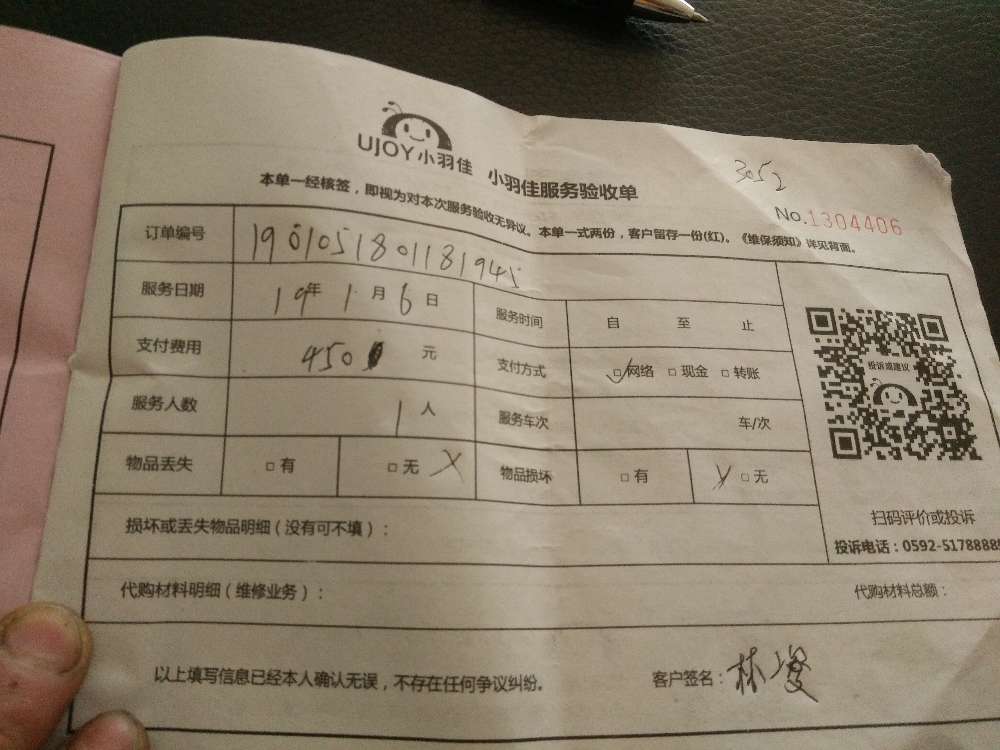 UJOY小羽佳 小羽佳服务验收单
3052
No.1304406
本单一经核签，即视为对本次服务验收无异议。本单一式两份，客户留存一份(红)。《维保须知》详见背面。
订单编号 1901051801181945
服务日期 19年 1月 6日 服务时间 自 至 止
支付费用 450 元 支付方式 ✓□网络 □现金 □转账
服务人数 1人 服务车次 车/次
物品丢失 □有 □无 物品损坏 □有 □无
投诉或建议
扫码评价或投诉
投诉电话：0592-5178888
损坏或丢失物品明细（没有可不填）：
代购材料明细（维修业务）： 代购材料总额：
以上填写信息已经本人确认无误，不存在任何争议纠纷。 客户签名：林俊